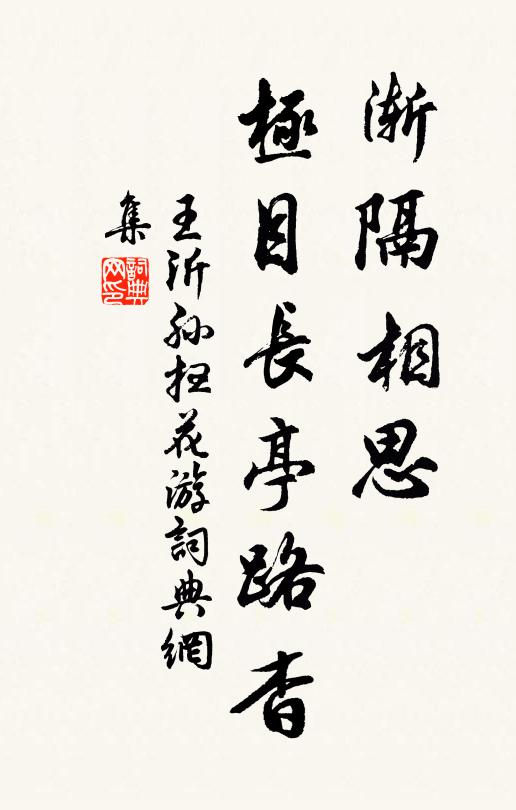 漸隔相思
極目長亭路杳
王沂孫掃花游詞典網
集
詞典
网印